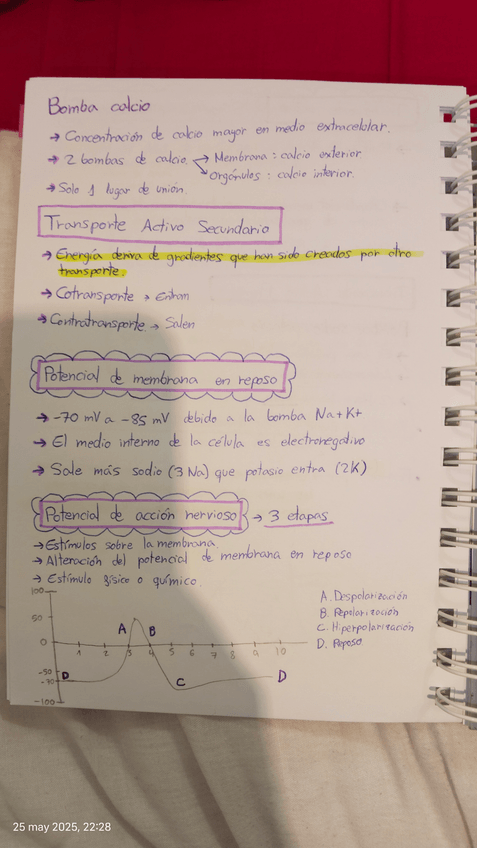 Bomba calcio
→ Concentración de calcio mayor en medio extracelular.
→ 2 bombas de calcio → Membrana : calcio exterior
Orgánulos : calcio interior.
→ Solo 1 lugar de unión.
Transporte Activo Secundario
→ Energía deriva de gradientes que han sido creados por otro
transporte.
→ Cotransporte → Entran
→ Contratransporte → Salen
Potencial de membrana en reposo
→ -70 mV a -85 mV debido a la bomba Na+K+
→ El medio interno de la célula es electronegativo
→ Sale más sodio (3 Na) que potasio entra (2K)
Potencial de acción nervioso → 3 etapas
→ Estímulos sobre la membrana.
→ Alteración del potencial de membrana en reposo
→ Estímulo físico o químico.
A. Despolarización
B. Repolarización
C. Hiperpolarización
D. Reposo
100
50
0
-50
-70
-100
1 2 3 4 5 6 7 8 9 10
A B
D C D
25 may 2025, 22:28